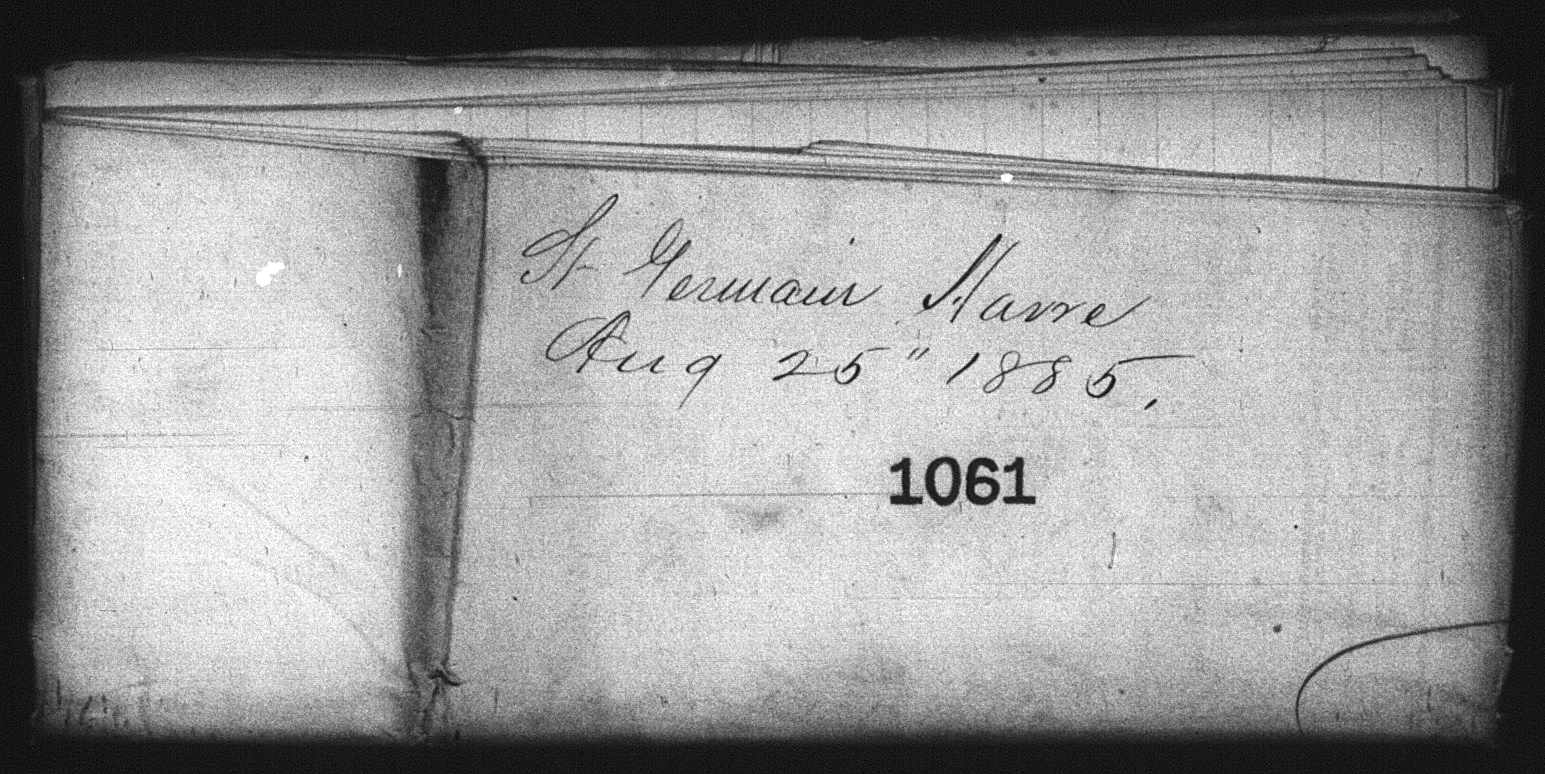 St Germain Havre
Aug 25" 1885,
1061